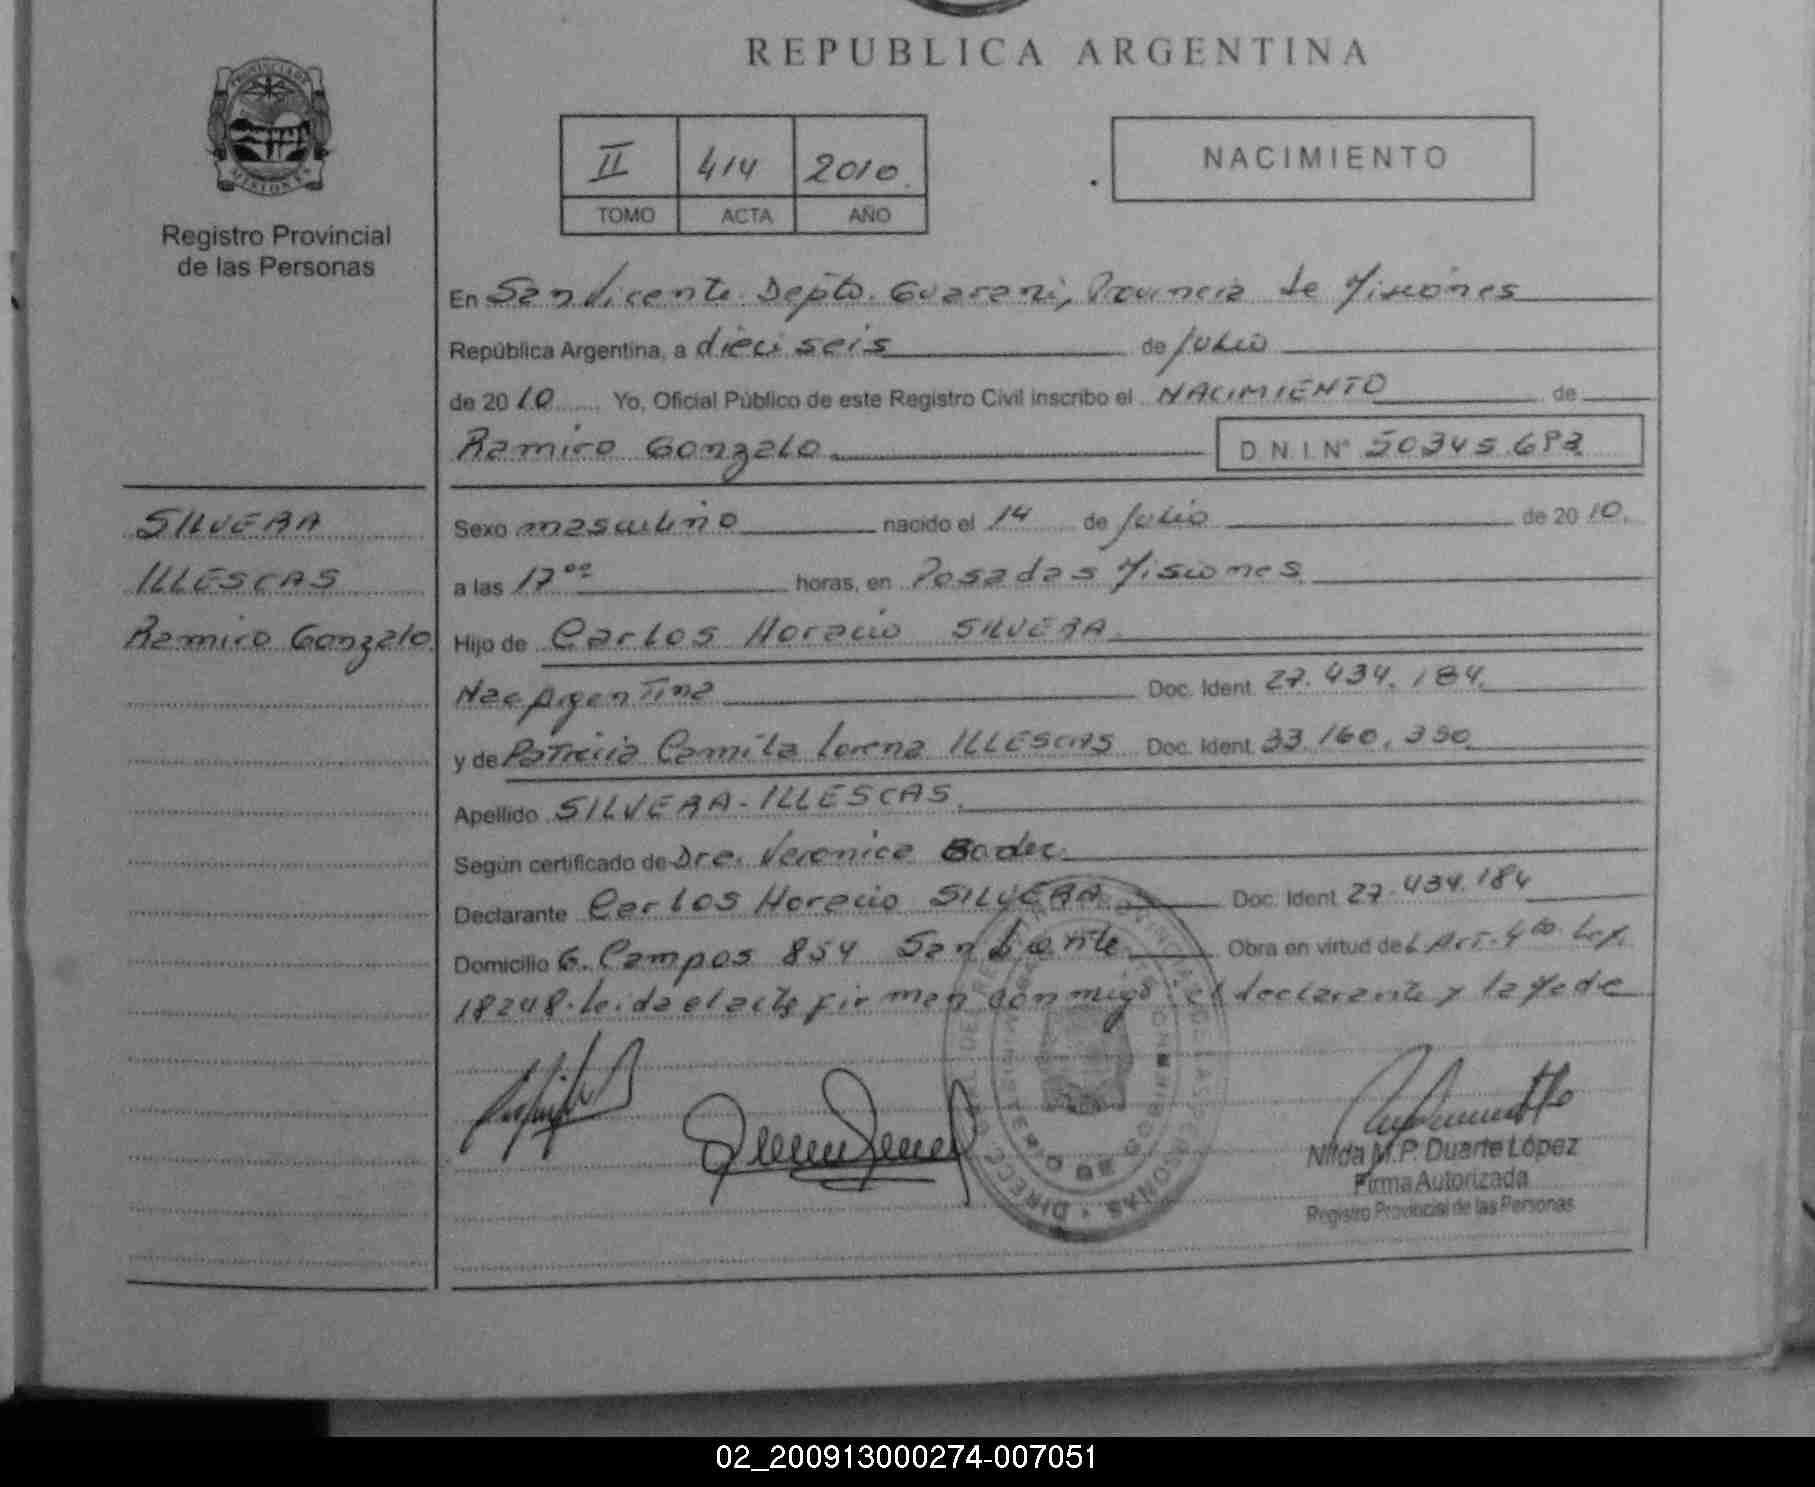 REPUBLICA ARGENTINA
PROVINCIA DE
MISIONES
Registro Provincial
de las Personas
II 414 2010.
TOMO ACTA AÑO
NACIMIENTO
En San Vicente Depto. Guarani, Provincia de Misiones
República Argentina, a dieciseis de Julio
de 2010 Yo, Oficial Público de este Registro Civil inscribo el NACIMIENTO de
Ramiro Gonzalo D.N.I.Nº 50345.693
SILVERA
ILLESCAS
Ramiro Gonzalo
Sexo masculino nacido el 14 de Julio de 2010.
a las 17°° horas, en Posadas Misiones
Hijo de Carlos Horacio SILVERA
Nac Argentina Doc. Ident. 27.434.184.
y de Patricia Camila Lorena ILLESCAS Doc. Ident. 33.160.350
Apellido SILVERA-ILLESCAS.
Según certificado de Dra. Veronica
Declarante Carlos Horacio SILVERA Doc. Ident. 27.434.184
Domicilio G. Campos 854 San Vicente Obra en virtud del Art. 4to. Ley.
18248. Leida el acta firman conmigo: el declarante y la Madre
Nilda M.P. Duarte López
Firma Autorizada
Registro Provincial de las Personas
02_200913000274-007051